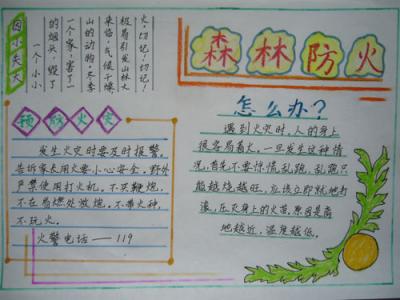 因小失大
一个小小
的烟头,毁了
一个家,害了一
山的动物。冬季
来临,气候干燥
极易引发山林大
火,切记!切记!
森林防火
预防火灾
发生火灾时要及时报警。
告诉家长用火要小心安全,野外
严禁使用打火机,不买鞭炮,
不在易燃处放炮,不带火种,
不玩火。
火警电话——119
怎么办?
遇到火灾时,人的身上
很容易着火,一旦发生这种情
况,首先不要惊慌乱跑,乱跑只
能越烧越旺,应该立即就地打
滚,压灭身上的火苗,原因是离
地越近,温度越低。